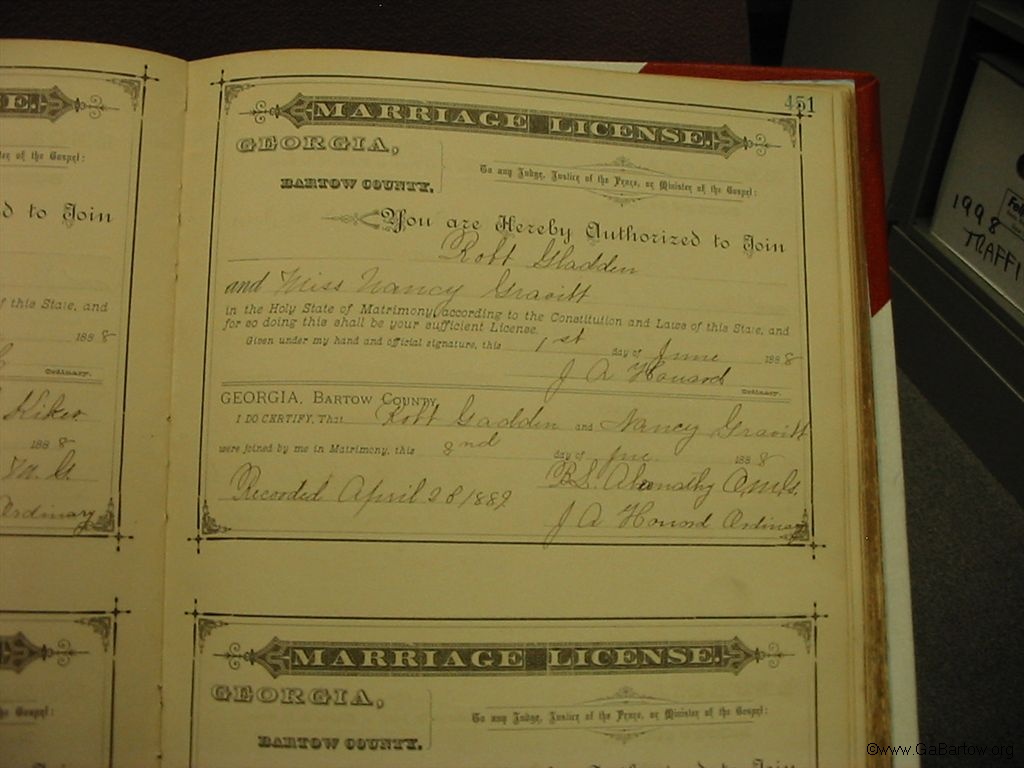 451
MARRIAGE LICENSE.
GEORGIA,
BARTOW COUNTY.
To any Judge, Justice of the Peace, or Minister of the Gospel:
You are Hereby Authorized to Join
Robt Gladden
and Miss Nancy Gravitt
in the Holy State of Matrimony, according to the Constitution and Laws of this State, and
for so doing this shall be your sufficient License.
Given under my hand and official signature, this 1st day of June 1888
J A Howard Ordinary.
GEORGIA, BARTOW COUNTY,
I DO CERTIFY, That Robt Gadden and Nancy Gravitt
were joined by me in Matrimony, this 8nd day of June 1888
B.S. Abernathy
Recorded April 28 1889
J A Howard Ordinary
MARRIAGE LICENSE.
GEORGIA,
BARTOW COUNTY.
To any Judge, Justice of the Peace, or Minister of the Gospel:
E.
ter of the Gospel:
d to Join
f this State, and
1888
Ordinary.
Kiker
1888
M. G.
Ordinary
the Gospel:
1998
TRAFFI
©www.GaBartow.org